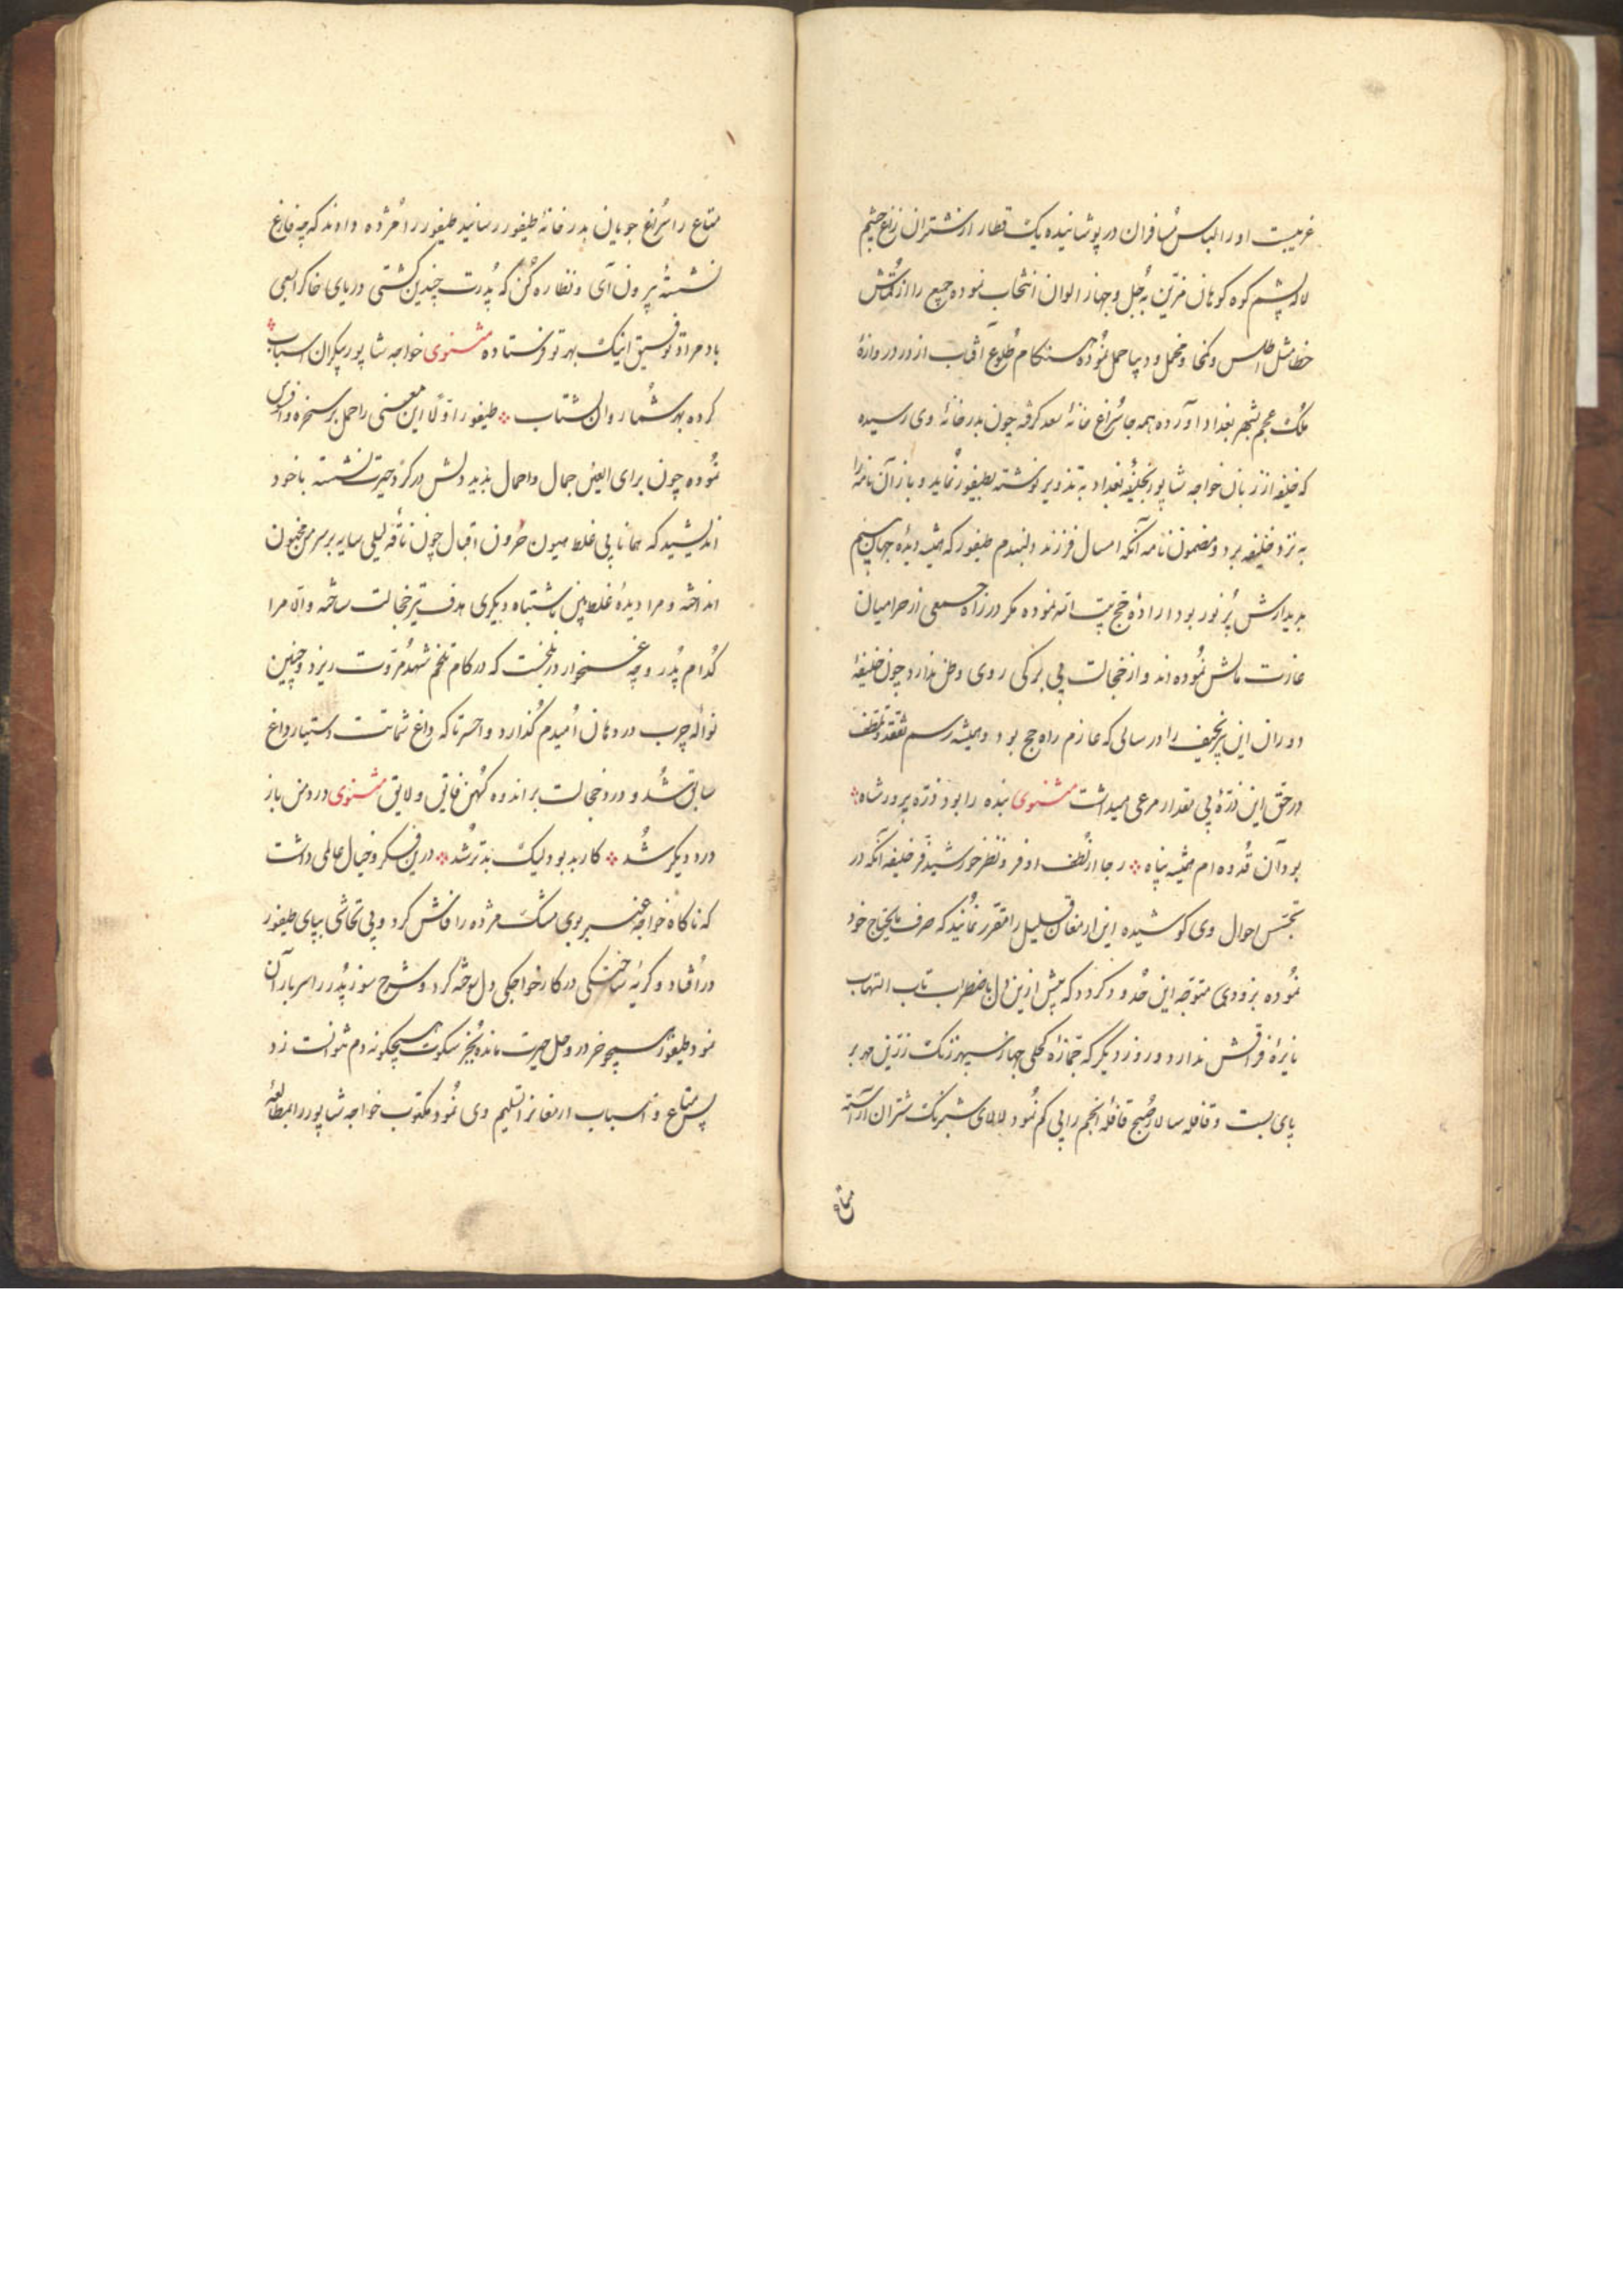 غریبت او را لباس مسافران در پوشانیده یک قطار از شتران زاغ چشم
لاله پشم کوه کوهان مزین به جل و جهاز الوان انتخاب نموده جمیع را از قماش
خطا مثل اطلس و کمخا و مخمل و دیبا حمل نموده هنکام طلوع آفتاب از در دروازهٔ
ملک عجم بشهر بغداد آورده همه جا سراغ خانهٔ سعد کرفته چون بدر خانهٔ وی رسیده
که خلیفه از زبان خواجه شاپور بخلیفهٔ بغداد به تذویر نوشته بطیفور نماید و باز آن نامه را
به نزد خلیفه برد و مضمون نامه آنکه امسال فرزند دلبندم طیفور که همیشه دیدهٔ جهان بینم
بدیدارش پر نور بود ارادهٔ حج بیت الله نموده مکر در راه جمعی از حرامیان
غارت مالش نموده اند و از خجالت بی برکی روی وطن ندارد چون خلیفهٔ
دوران این پیر نحیف را در سالی که عازم راه حج بود و همیشه رسم تفقد و تلطف
در حق این ذرهٔ بی مقدار مرعی میداشت مثنوی بنده را بود ذره پرور شاه
بود آن قدوه ام همیشه پناه رجا از لطف اوفر و نظر خورشید فر خلیفه آنکه در
تجسس احوال وی کوشیده این ارمغان قلیل را مقرر نمایند که صرف مایحتاج خود
نموده بزودی متوجه این حدود کردد که بیش ازین دل با ضطراب تاب التهاب
نایرهٔ فراقش ندارد و روز دیگر که جمازهٔ کحلی جهاز سپهر زنک زرین مهر بر
پای بست و قافله سالار صبح قافلهٔ انجم را پی کم نمود لالای شبرنک شتران آراسته
متاع
متاع را سراغ جویان بدر خانهٔ طیفور رسانید طیفور را مژده دادند که چه فارغ
نشستهٔ بیرون آی و نظاره کن که پدرت چندین کشتی دریای خاک اعنی
باد مراد توفیق اینک بهر تو فرستاده مثنوی خواجه شاپور بیکران اسباب
کرده بهر شما روان بشتاب طیفور اولا این معنی را حمل بر سخره و افسوس
نموده چون برای العین جمال و احمال بدید دلش در کرد حیرت نشسته با خود
اندیشید که همانا پی غلط میون حرون اقبال چون ناقهٔ لیلی سایه بر سر من مجنون
انداخته و مرا دیدهٔ غلط بین باشتباه دیکری هدف تیر خجالت ساخته والا مرا
کدام پدر و چه غمخوار در بلخست که در کام تلخم شهد مروت ریزد و چنین
نوالهٔ چرب در دهان امیدم کذارد واحسرتا که داغ شماتت دستیار داغ
سابق شد و درد خجالت بر اندوه کهن فایق و لایق مثنوی درد من باز
درد دیکر شد کار بد بود لیک بدتر شد درین فکر و خیال عالمی داشت
که ناکاه خواجه عنبر بوی مشک مژده را فاش کرد و بی تحاشی بپای طیفور
در افتاد و کریهٔ ساختکی در کار خواجکی دل سوخته کرد و شرح سوز پدر را سربار آن
نمود طیفور همچو خر در وحل حیرت مانده بجز سکوت هیچکونه دم نتوانست زد
پس متاع و اسباب ارمغانرا تسلیم وی نمود مکتوب خواجه شاپور را بمطالعهٔ